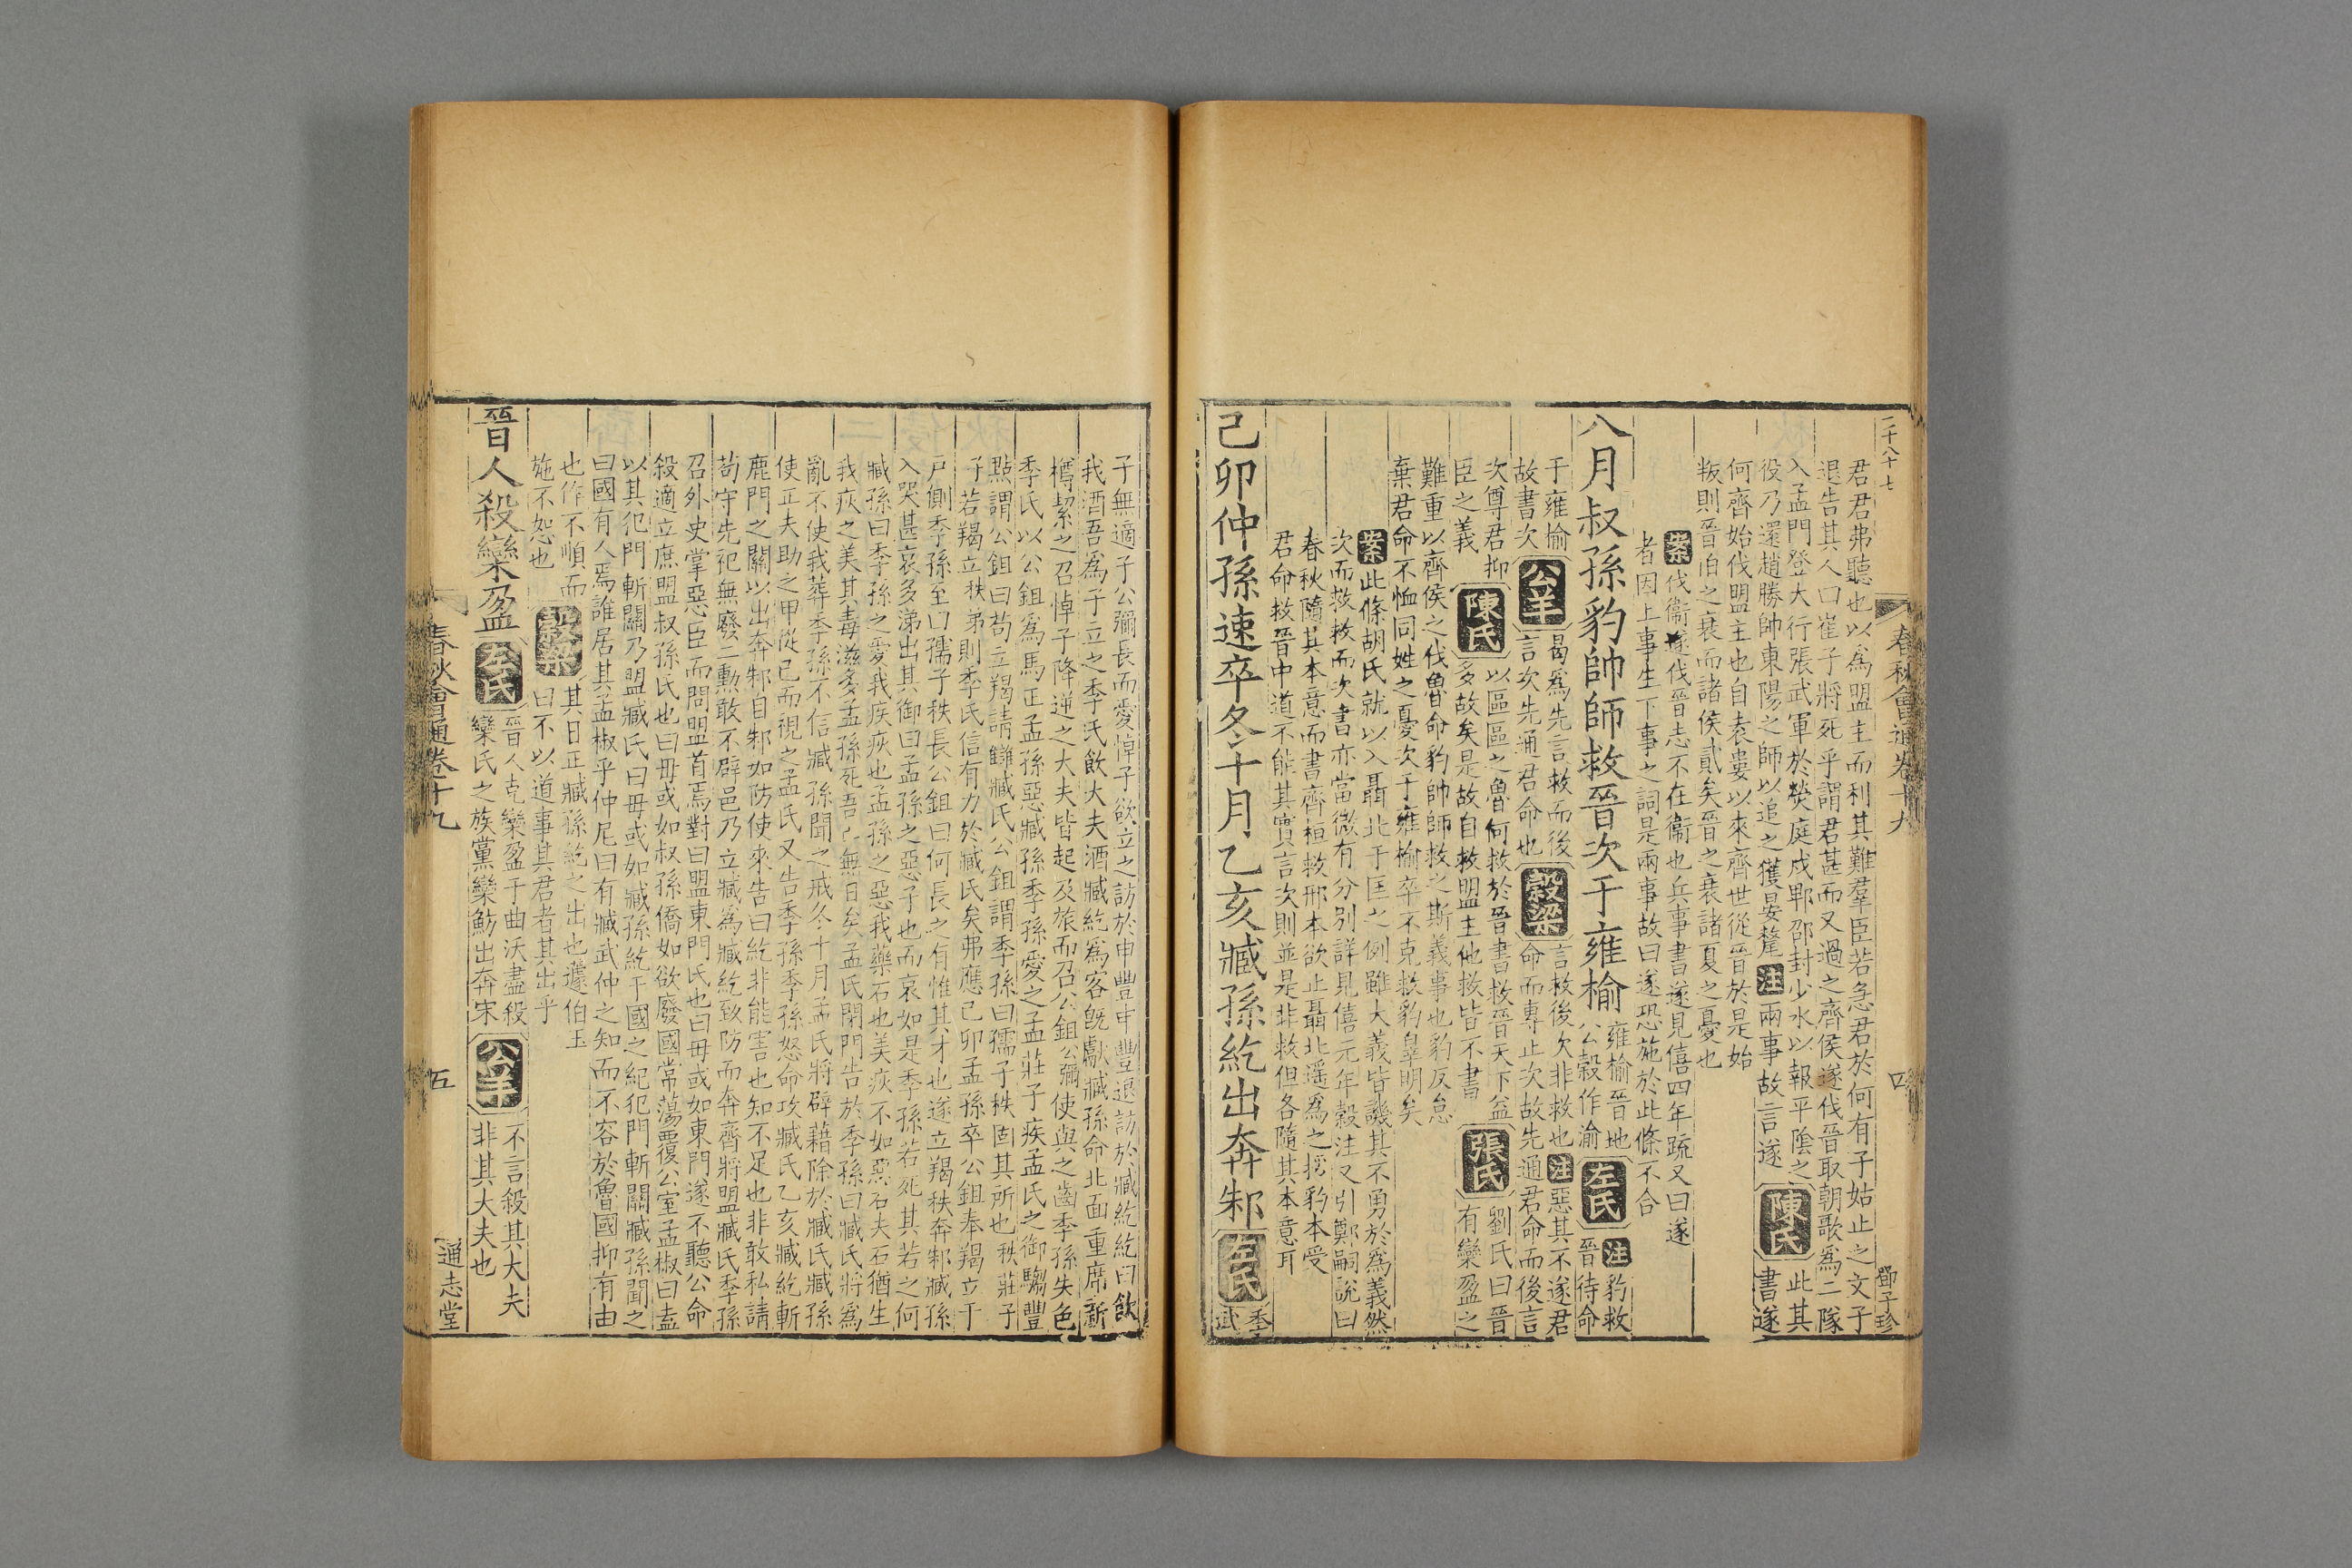 二千八十七
春秋會通卷十九
四
鄧子珍
君君弗聽也以爲盟主而利其難羣臣若急君於何有子姑止之文子
退告其人曰崔子將死乎謂君甚而又過之齊侯遂伐晉取朝歌爲二隊
入孟門登大行張武軍於熒庭戍郫邵封少水以報平陰之
役乃還趙勝帥東陽之師以追之獲晏氂注兩事故言遂陳氏此其
書遂
何齊始伐盟主也自袁婁以來齊世從晉於是始
叛則晉伯之衰而諸侯貳矣晉之衰諸夏之憂也
案伐衞遂伐晉志不在衞也兵事書遂見僖四年疏又曰遂
者因上事生下事之詞是兩事故曰遂恐施於此條不合
八月叔孫豹帥師救晉次于雍榆雍榆晉地
公穀作渝左氏注豹救
晉待命
于雍榆
故書次公羊曷爲先言救而後
言次先通君命也穀梁言救後次非救也注惡其不遂君
命而專止次故先通君命而後言
次尊君抑
臣之義陳氏以區區之魯何救於晉書救晉天下益
多故矣是故自救盟主他救皆不書張氏劉氏曰晉
有欒盈之
難重以齊侯之伐魯命豹帥師救之斯義事也豹反怠
棄君命不恤同姓之憂次于雍榆卒不克救豹辠明矣
案此條胡氏就以入聶北于匡之例雖大義皆譏其不勇於爲義然
次而救救而次書亦當微有分別詳見僖元年穀注又引鄭嗣說曰
春秋隨其本意而書齊桓救邢本欲止聶北遙爲之援豹本受
君命救晉中道不能其實言次則並是非救但各隨其本意耳
己卯仲孫速卒冬十月乙亥臧孫紇出奔邾左氏季
武
子無適子公彌長而愛悼子欲立之訪於申豐申豐退訪於臧紇紇曰飲
我酒吾爲子立之季氏飲大夫酒臧紇爲客旣獻臧孫命北面重席新
樽絜之召悼子降逆之大夫皆起及旅而召公鉏公彌使與之齒季孫失色
季氏以公鉏爲馬正孟孫惡臧孫季孫愛之孟莊子疾孟氏之御騶豐
點謂公鉏曰苟立羯請讎臧氏公鉏謂季孫曰孺子秩固其所也秩莊子
子若羯立秩弟則季氏信有力於臧氏矣弗應己卯孟孫卒公鉏奉羯立于
戶側季孫至曰孺子秩長公鉏曰何長之有惟其才也遂立羯秩奔邾臧孫
入哭甚哀多涕出其御曰孟孫之惡子也而哀如是季孫若死其若之何
臧孫曰季孫之愛我疾疢也孟孫之惡我藥石也美疢不如惡石夫石猶生
我疢之美其毒滋多孟孫死吾亡無日矣孟氏閉門告於季孫曰臧氏將爲
亂不使我葬季孫不信臧孫聞之戒冬十月孟氏將辟藉除於臧氏臧孫
使正夫助之甲從己而視之孟氏又告季孫季孫怒命攻臧氏乙亥臧紇斬
鹿門之關以出奔邾自邾如防使來告曰紇非能害也知不足也非敢私請
苟守先祀無廢二勳敢不辟邑乃立臧爲臧紇致防而奔齊將盟臧氏季孫
召外史掌惡臣而問盟首焉對曰盟東門氏也曰毋或如東門遂不聽公命
殺適立庶盟叔孫氏也曰毋或如叔孫僑如欲廢國常蕩覆公室孟椒曰盍
以其犯門斬關乃盟臧氏曰毋或如臧孫紇干國之紀犯門斬關臧孫聞之
曰國有人焉誰居其孟椒乎仲尼曰有臧武仲之知而不容於魯國抑有由
也作不順而
施不恕也穀梁其日正臧孫紇之出也蘧伯玉
曰不以道事其君者其出乎
晉人殺欒盈左氏晉人克欒盈于曲沃盡殺
欒氏之族黨欒魴出奔宋公羊不言殺其大夫
非其大夫也
春秋會通卷十九
五
通志堂